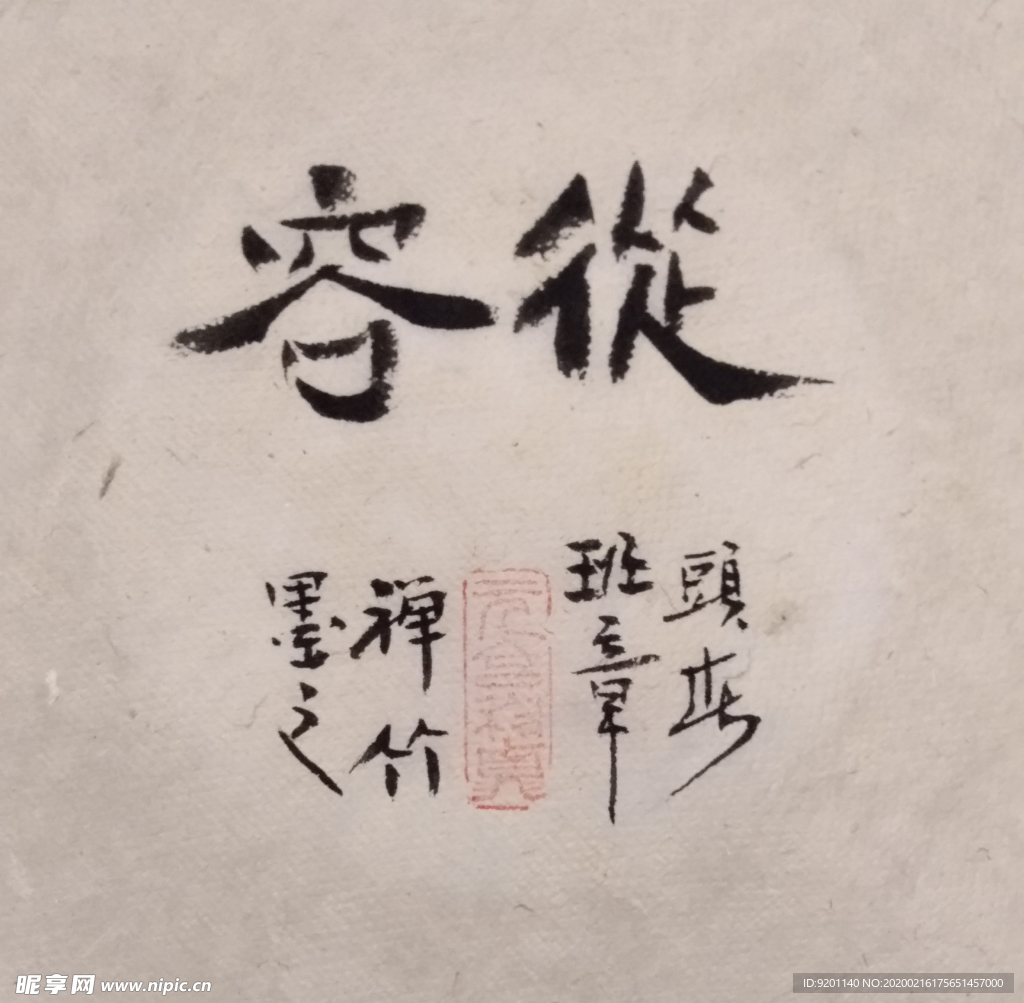 從容
頭春
班章
元亨利貞
禅竹
墨之
昵享网 www.nipic.cn
ID:9201140 NO:20200216175651457000